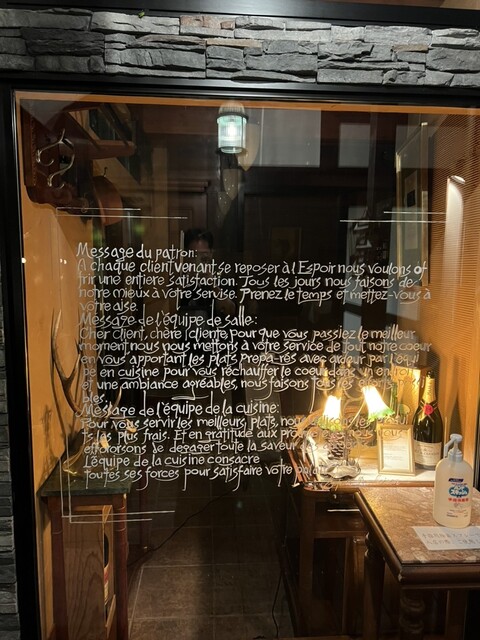 Message du patron:
A chaque client venant se reposer à l'Espoir nous voulons of
frir une entière satisfaction. Tous les jours nous faisons de
notre mieux à votre servise. Prenez le temps et mettez-vous à
votre aise.
Message de l'équipe de salle:
Cher client, chère cliente, pour que vous passiez le meilleur
moment nous nous mettons à votre service de tout notre coeur
en vous apportant les plats préparés avec par l'équi
pe en cuisine pour vous réchauffer le coeur dans un
et une ambiance agréables, nous faisons
bles.
Message de l'équipe de la cuisine:
Pour vous servir les meilleurs plats,
ts les plus frais. Et en gratitude aux
efforçorsons de dégager toute la saveur
L'équipe de la cuisine consacre
toutes ses forces pour satisfaire votre